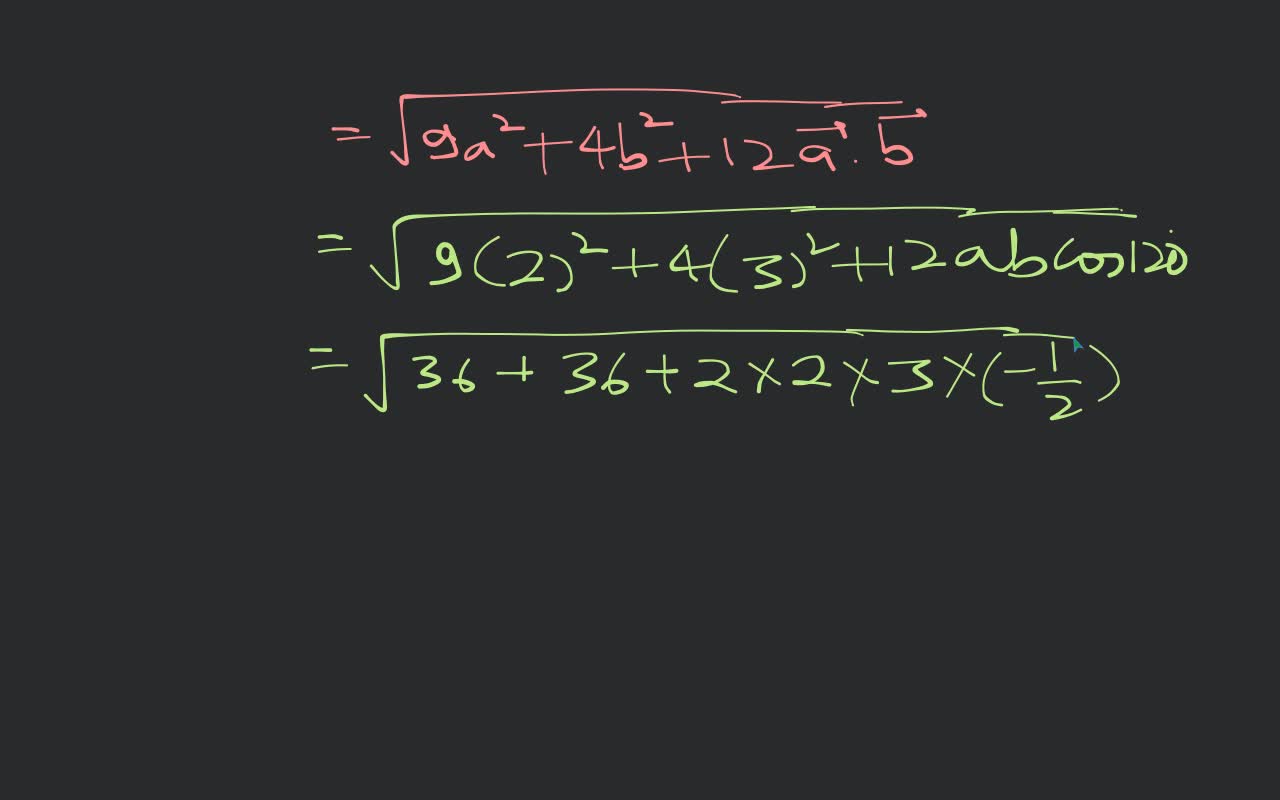 = √(9a² + 4b² + 12a⃗ . b⃗)
= √(9(2)² + 4(3)² + 12abcos120°)
= √(36 + 36 + 2 × 2 × 3 × (-1/2))